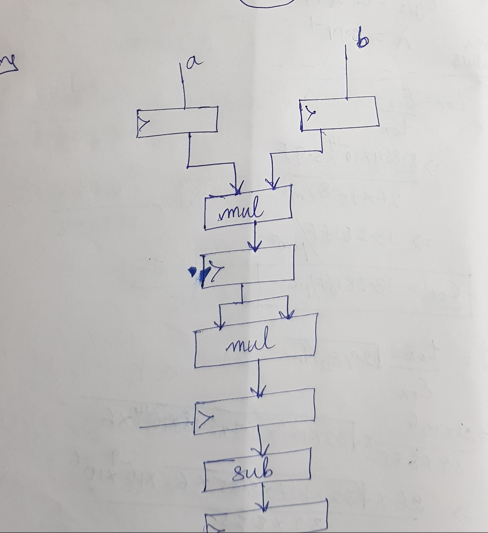 a
b
mul
mul
sub